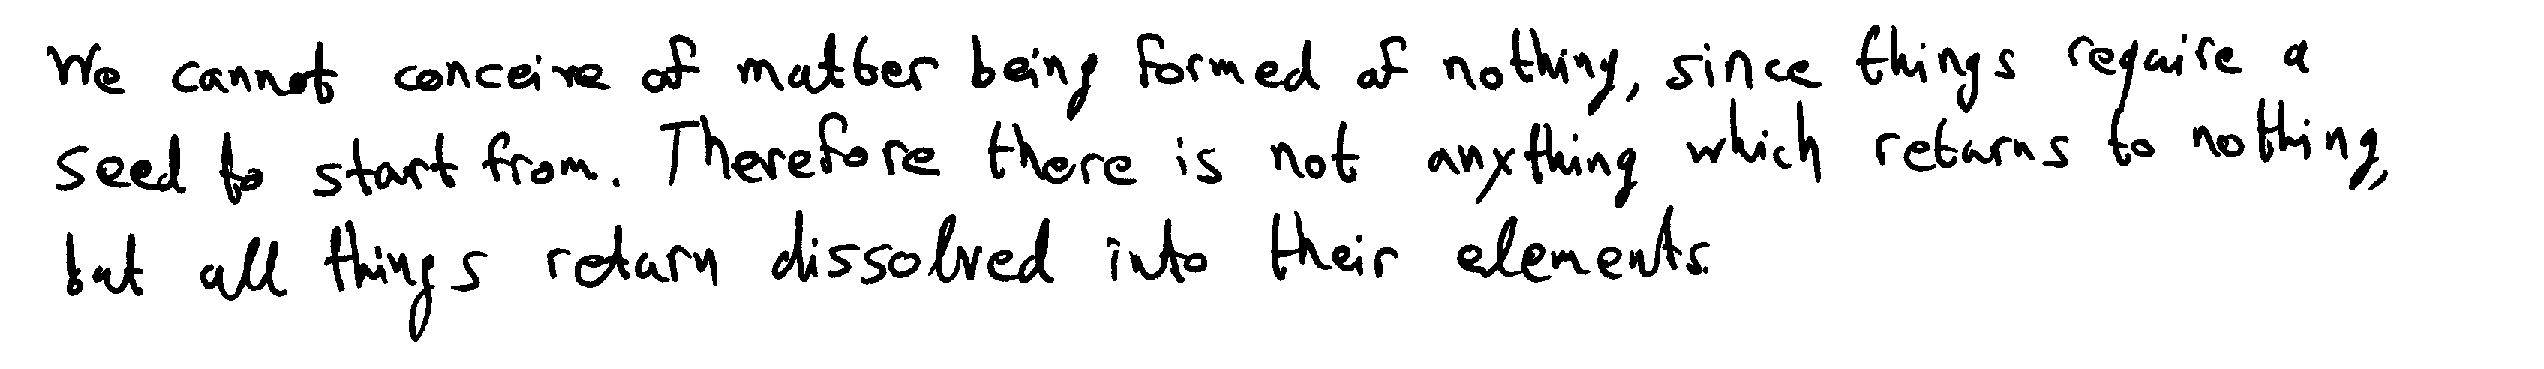 We cannot conceive of matter being formed of nothing, since things require a
seed to start from. Therefore there is not anything which returns to nothing,
but all things return dissolved into their elements.